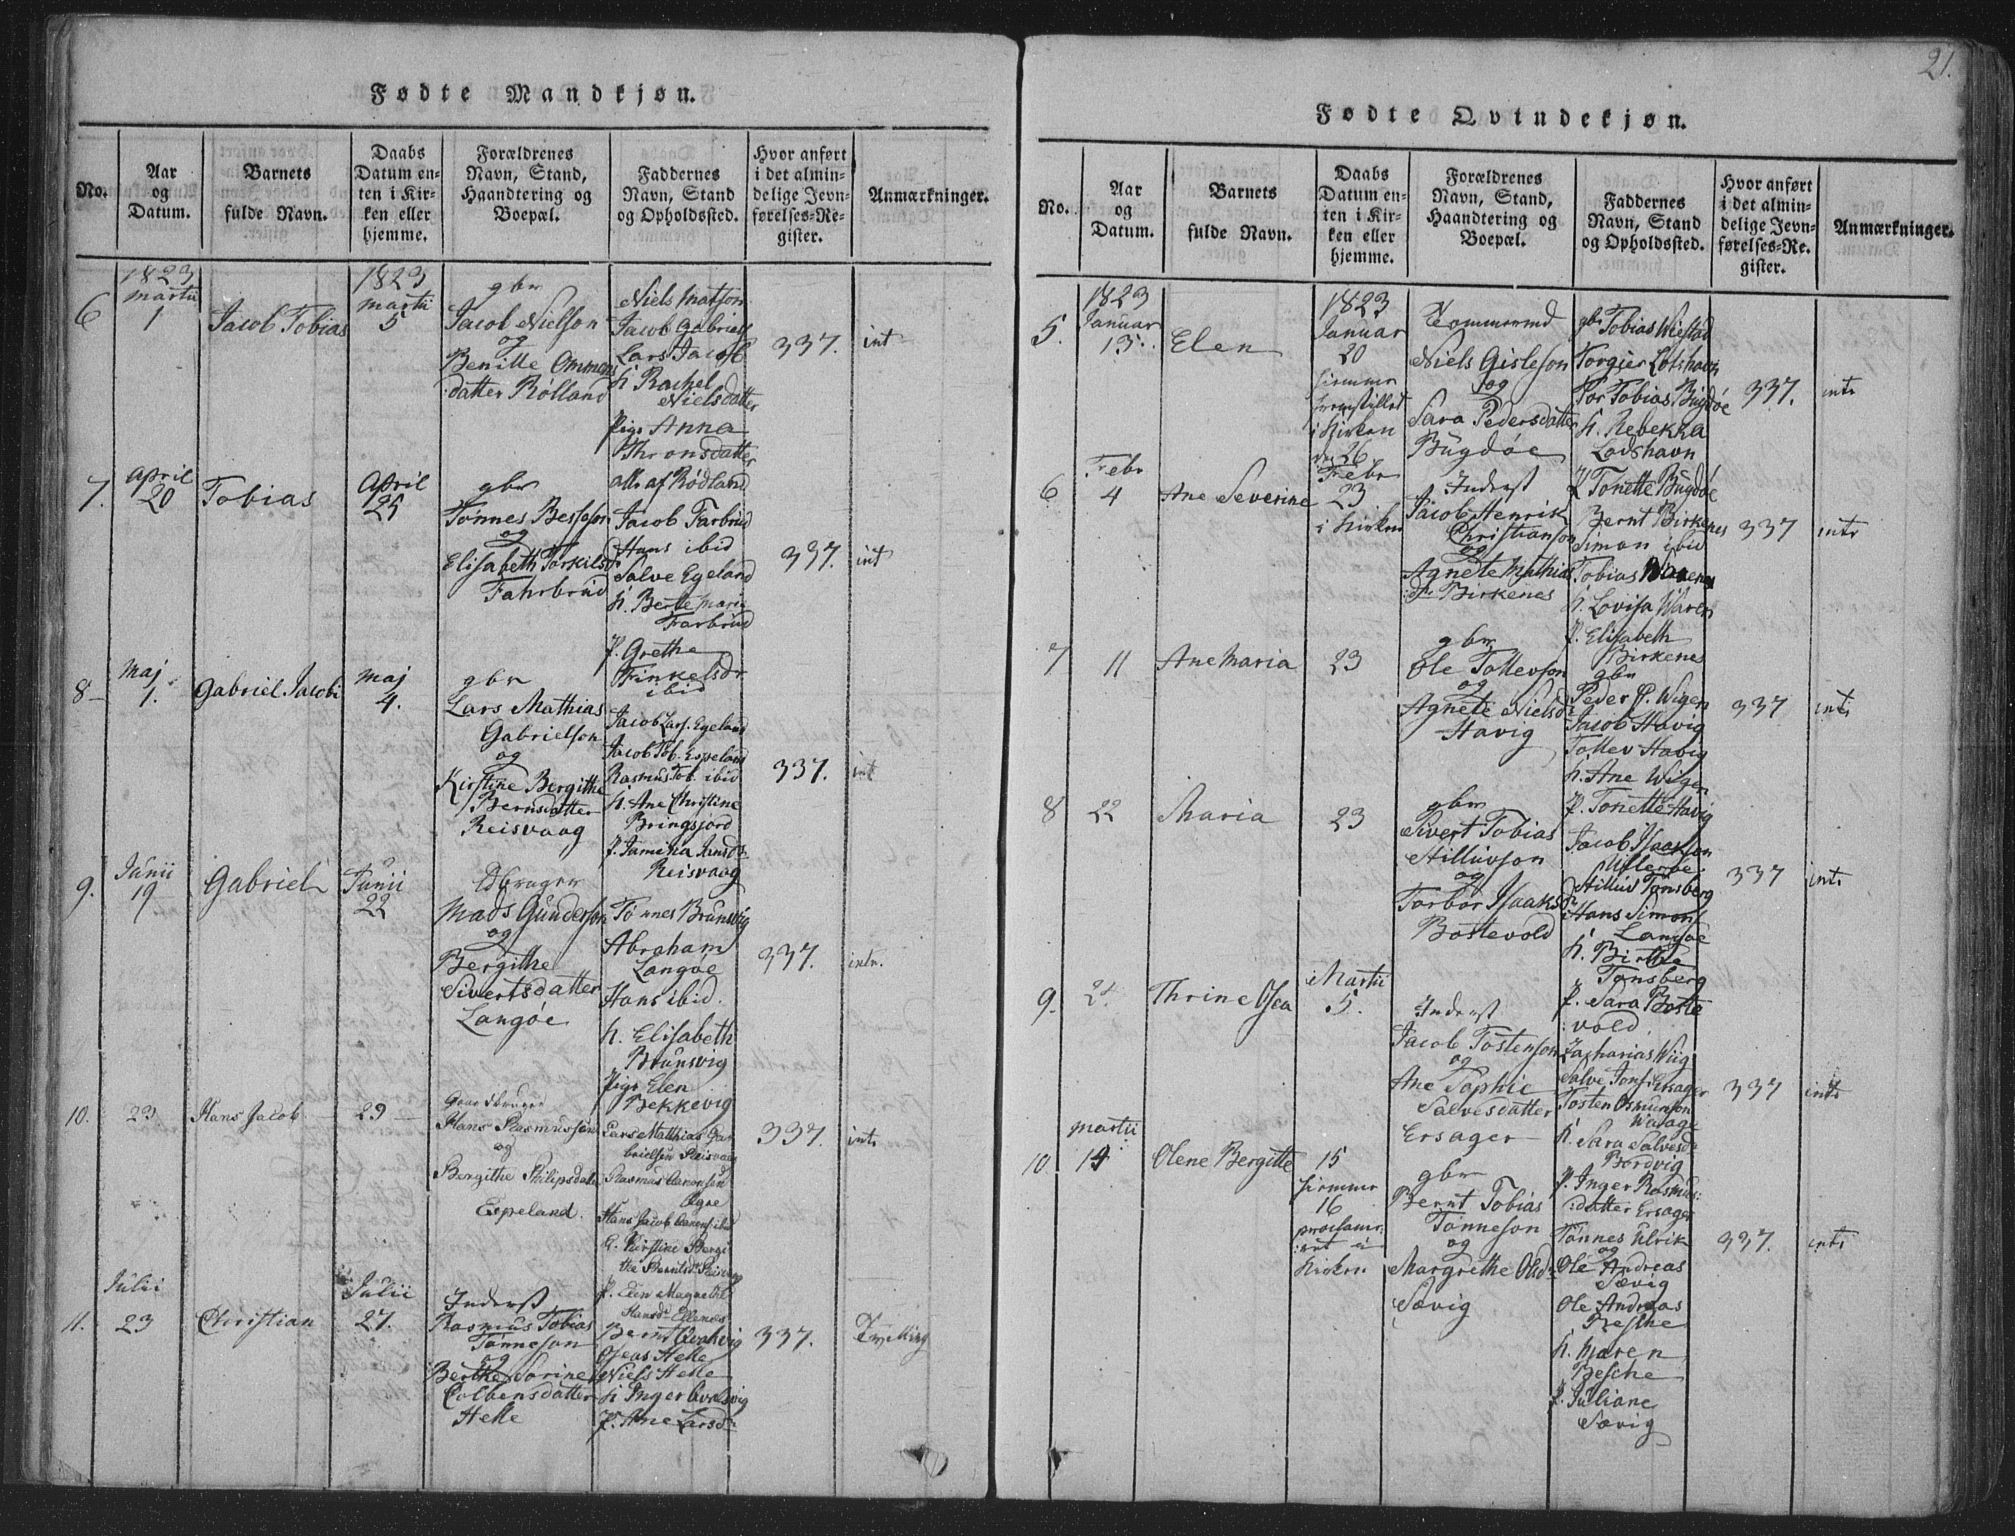 Fødte Mandkjøn.
No.
Aar
og
Datum.
Barnets
fulde Navn.
Daabs
Datum en-
ten i Kir-
ken eller
hjemme.
Forældrenes
Navn, Stand,
Haandtering og
Boepæl.
Faddernes
Navn, Stand
og Opholdssted.
Hvor anført
i det almin-
delige Jevn-
førelses-Re-
gister.
Anmærkninger.
6
1823
martii
1
Jacob Tobias
1823
martii
5
gbr
Jacob Nielson
og
Benille Ommens
datter Rölland
Niels Matson
Jacob Gabriels
Lars Jacob
h. Rachel
Nielsdatter
Pige Anna
Thronsdatter
alle af Rödland
337.
int
7.
April
20
Tobias
April
25
gbr
Tönnes Bessesen
og
Elisabeth Torkilsdr
Fahrbrud
Jacob Farbrud
Hans ibid
Salve Egeland
h. Berte Maria
Farbrud
P. Grethe
Trinkelsdr
ibid
337.
int
8
Maj
1.
Gabriel Jacobi
Maj
4.
gbr
Lars Mathias
Gabrielson
og
Kirstine Bergithe
Berntsdatter
Reisvaag
Jacob Lars. Egeland
Jacob Tob. Espeland
Rasmus Tob. ibid
h. Ane Christine
Bringsjord
P. Jamina
Reisvaag
337.
int
9.
Junii
19
Gabriel
Junii
22
Gdbruger
Mads Gunderson
og
Bergithe
Sivertsdatter
Langöe
Tönnes Brunsvig
Abraham
Langöe
Hans ibid.
h. Elisabeth
Brunsvig
Pige Elen
Bekkevig
337.
intr.
10.
23
Hans Jacob
29
Gaardbruger
Hans Rasmussen
og
Bergithe Philipsdatter
Espeland.
Lars Matthias Ga-
brielsen Reisvaag
Rasmus Aanonsen
Hans Jacob Aanons ibid
K. Kirstine Bergi
the Berntsdr Reisvaag
P. Elen Magrethe
Hansdr Ellenæs
337.
intr
11.
Julii
23
Christian
Julii
27.
Inderst
Rasmus Tobias
Tönneson
og
Berthe Sorine
Colbensdatter
Helle
Bernt
Oseas Helle
Niels Helle
h. Inger
P. Ane Larsdr
337.
Tvilling
21.
Fødte Qvindekjøn.
No.
Aar
og
Datum.
Barnets
fulde Navn.
Daabs
Datum en-
ten i Kir-
ken eller
hjemme.
Forældrenes
Navn, Stand,
Haandtering og
Boepæl.
Faddernes
Navn, Stand
og Opholdsted.
Hvor anført
i det almin-
delige Jevn-
førelses-Re-
gister.
Anmærkninger.
5.
1823
Januar
13.
Elen
1823
Januar
20
hjemme
fremstillet
i Kirken
den 26
Tommermd
Niels Gisleson
og
Sara Pedersdatter
Bugdöe
gbr Tobias Wiestad
Torgier Lotshavn
Por Tobias Bugdöe
h. Rebekka
Lodshavn
P Tonette Bugdöe
337.
intr
6
Febr
4
Ane Severine
Febr
23
i Kirken
Inderst
Jacob Henrik
Christianson
og
Agnete Mathias
dr Birkenes
Bernt Birkenes
Simon ibid
Tobias Waren
h. Lovisa Waren
P. Elisabeth
Birkenes
337
intr
7
11
Ane Maria
23
gbr
Ole Tollevson
og
Agnete Nielsdr
Havig
gbr
Peder P. Wigen
Jacob Havig
Tollev Havig
h. Ane Wigen
P. Tonette Havig
337
intr
8
22
Maria
23
gbr
Sivert Tobias
Stilluvson
og
Torbor Isaksdr
Bostevold
Jacob Isaakson
Ulleröe
Stillus Tonsberg
Hans Simons
Langöe
h. Birthe
Tonsberg
P. Sara Boste
vold
337
intr
9.
24
Thrine Osea
Martii
5.
Inderst
Jacob Tostenson
og
Ane Sophie
Salvesdatter
Ersager
Zacharias Wiig
Salve Jons. Ersager
Tosten Osmunson
Waage
h. Sara Salvesdr
Bordvig
P. Inger Rasmus
datter Ersager
337
intr
10.
martii
14
Olene Bergitte
15
hjemme
16
proclame
ret i
Kirken
gbr
Bernt Tobias
Tönneson
og
Margrethe Olsdr
Sævig
Tönnes Ulrik
og
Ole Andreas
Sævig
Ole Andreas
Resche
h. Maren
Resche
P. Juliane
Sævig
337.
intr